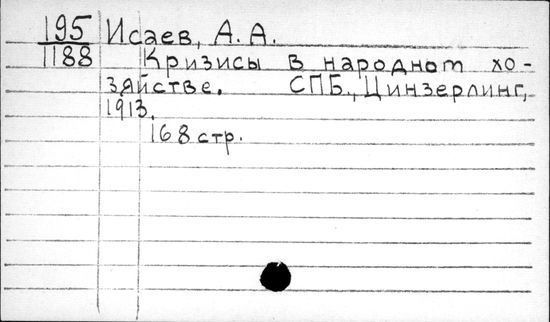 195 Исаев, А. А.
1188 Кризисы в народном хо-
зяйстве. СПБ., Цинзерлинг,
1913.
168 стр.